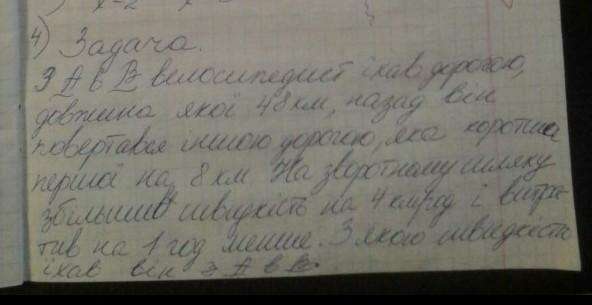 4) Задача.
З А в В велосипедист їхав дорогою,
довжина якої 48 км, назад він
повертався іншою дорогою, яка коротша
першої на 8 км. На зворотному шляху
збільшив швидкість на 4 км/год і витра-
тив на 1 год менше. З якою швидкістю
їхав він з А в В.